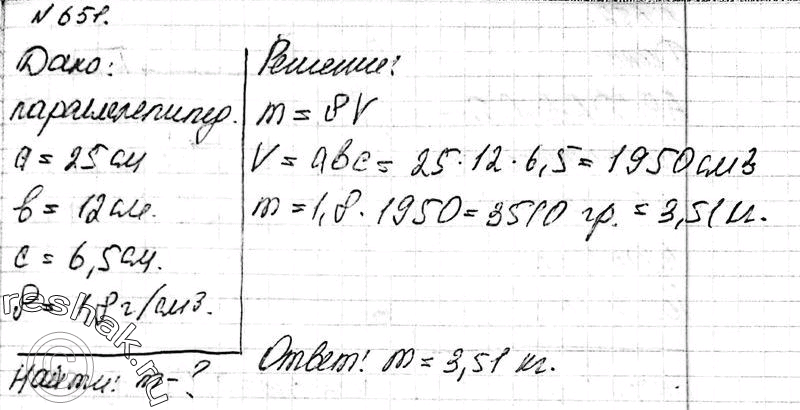 № 651.
Дано:
параллелепипед.
a = 25 см
b = 12 см.
c = 6,5 см.
ρ = 1,8 г/см3.
Найти: m - ?
Решение:
m = ρV
V = abc = 25 · 12 · 6,5 = 1950 см3
m = 1,8 · 1950 = 3510 гр. = 3,51 кг.
Ответ: m = 3,51 кг.
reshak.ru